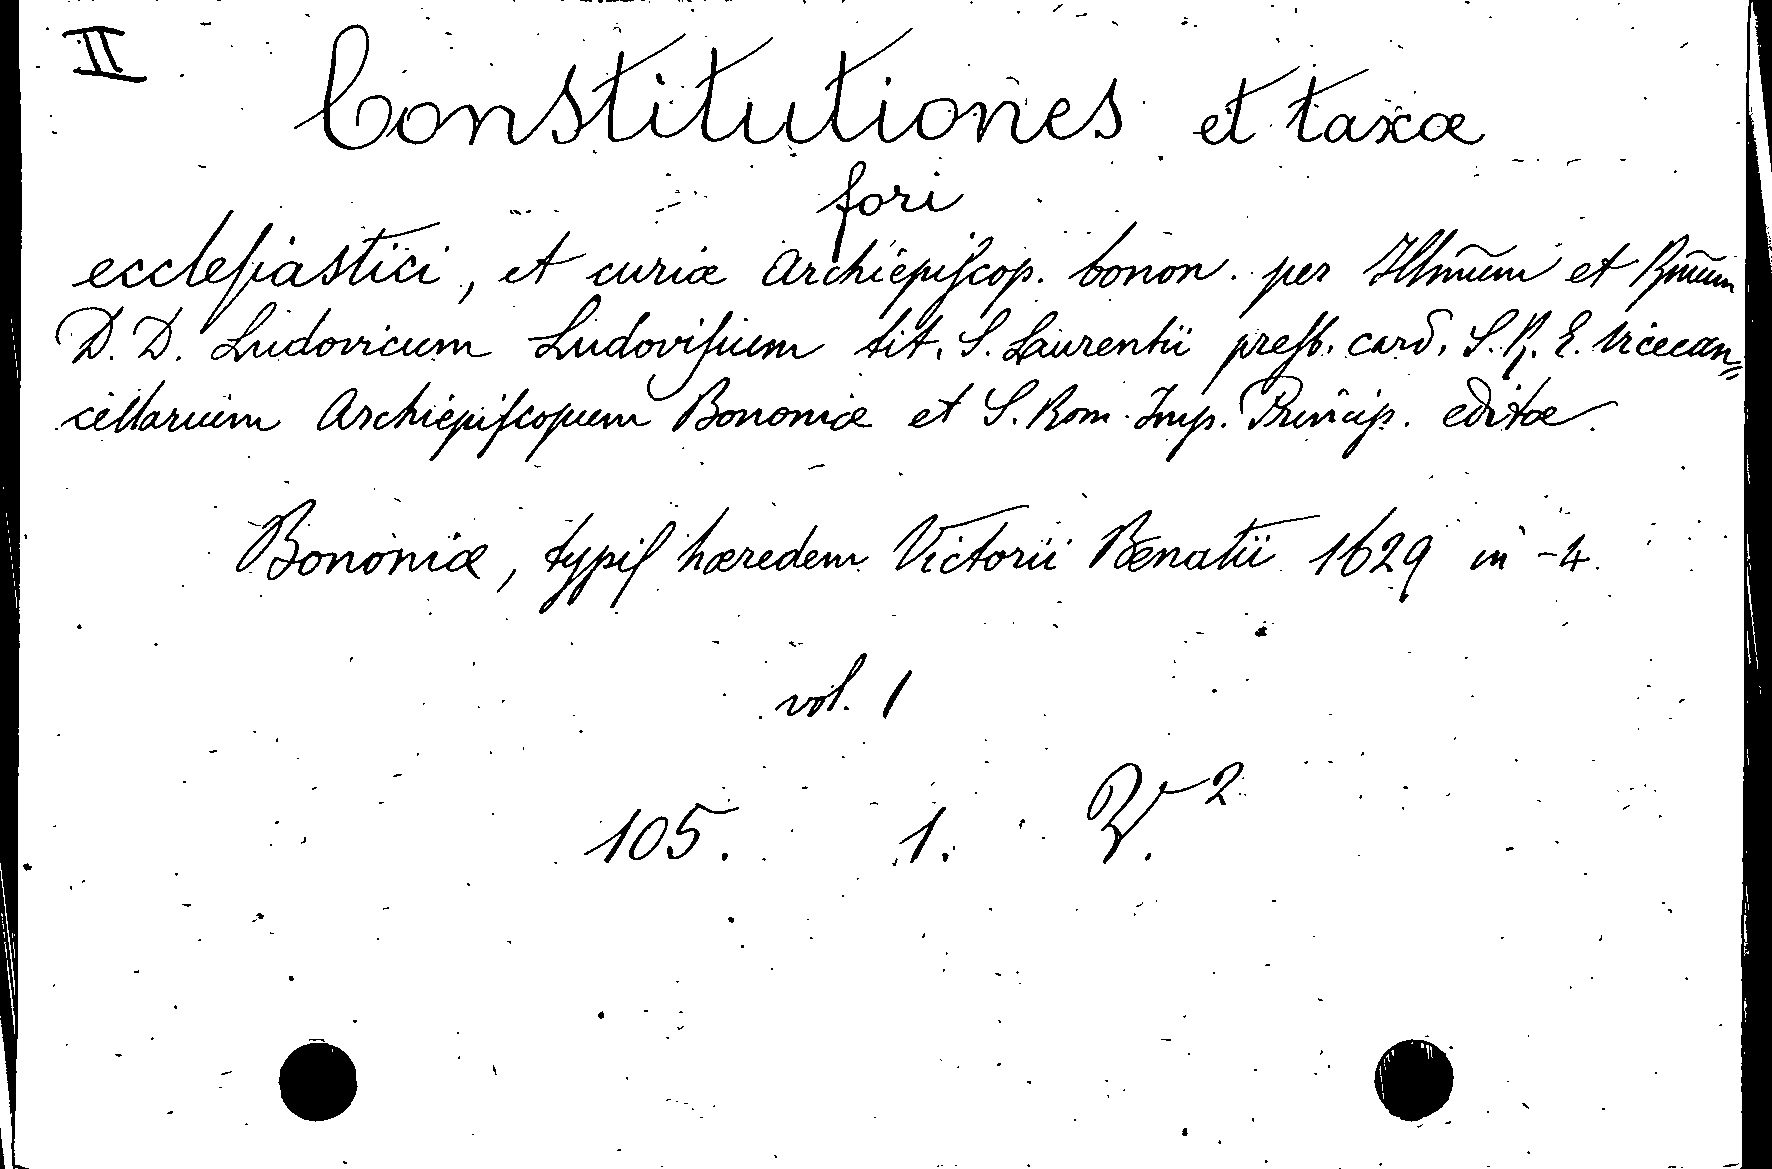 II
Constitutiones et taxæ
fori
ecclesiastici, et curiæ Archiepiscop. bonon. per Illm̃um et Rm̃um
D. D. Ludovicum Ludovisium tit. S. Laurentii presb. card. S. R. E. Vicecan=
cellarium Archiepiscopum Bononiæ et S. Rom. Imp. Princip. editæ.
Bononiæ, typis hæredem Victorii Benatii 1629 in -4.
vol. 1
105. 1. 2